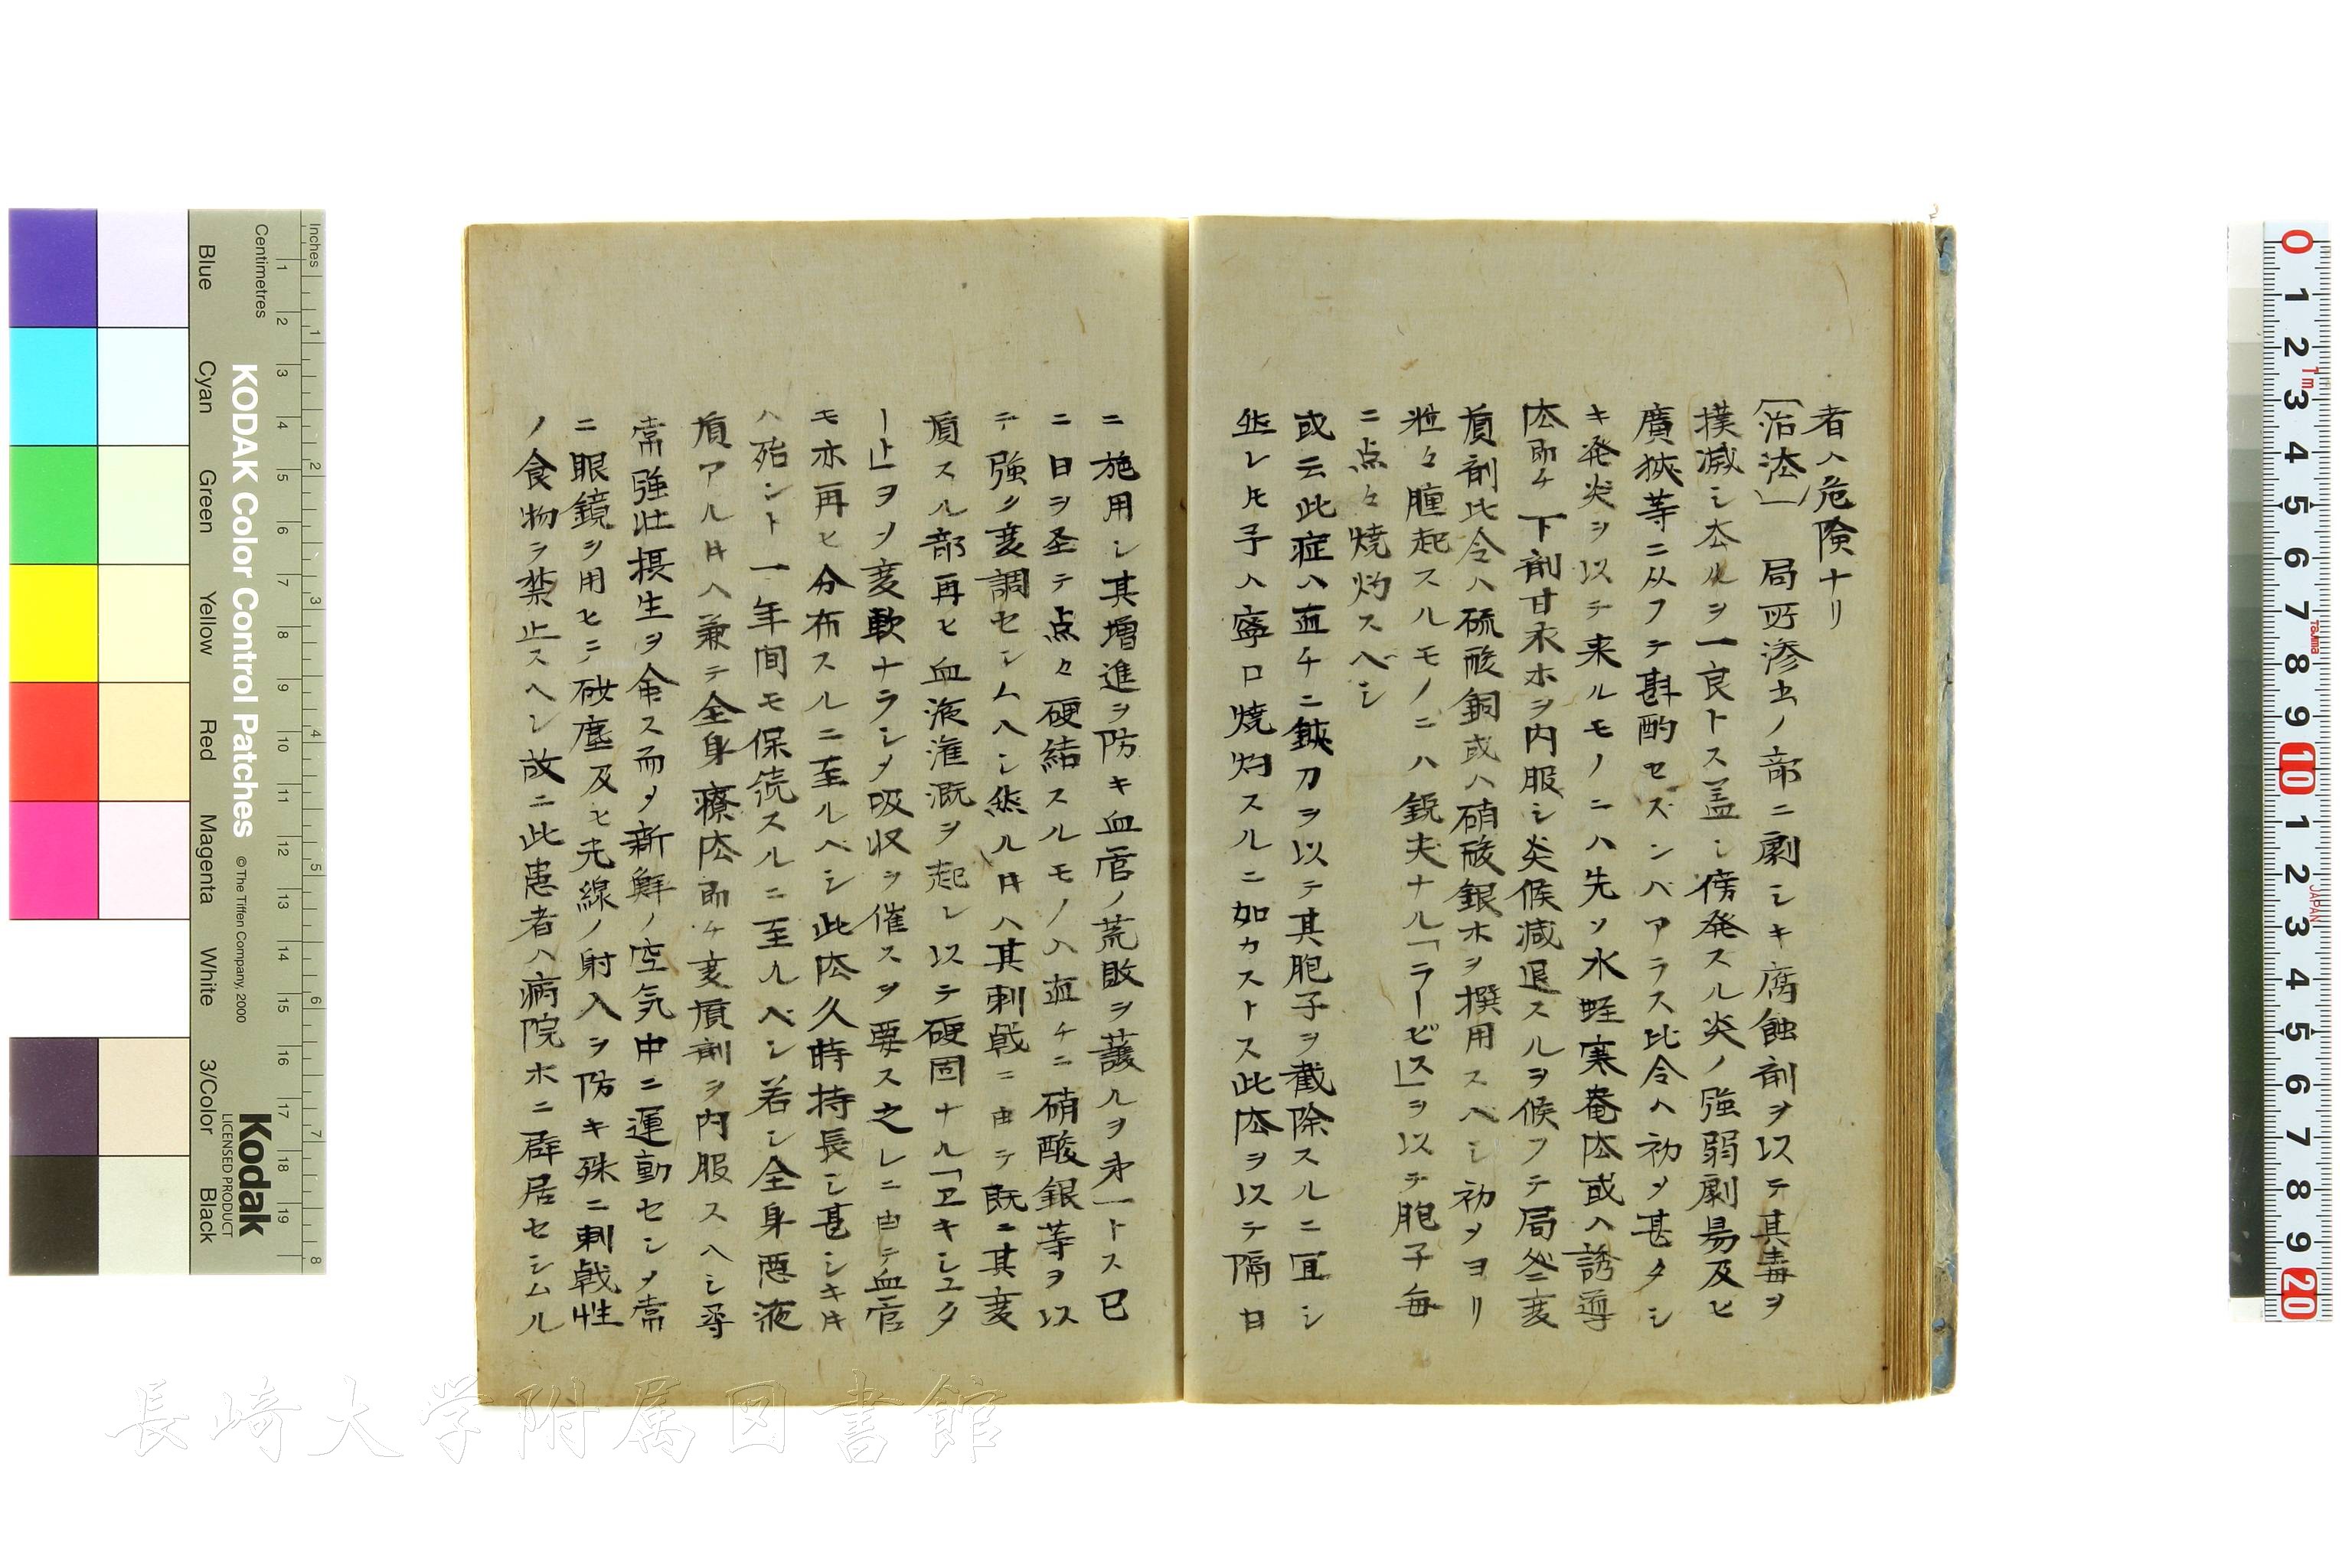 者ハ危険ナリ
〔治法〕　局所滲出ノ部ニ劇シキ腐蝕剤ヲ以テ其毒ヲ
撲滅シ去ルヲ一良トス盖シ傍発スル炎ノ強弱劇易及ヒ
廣狭等ニ从フテ斟酌セズンバアラス比令ヘ初メ甚タシ
キ発炎ヲ以テ来ルモノニハ先ツ水蛭寒菴法或ハ誘導
法即チ下剤甘汞ホヲ内服シ炎候减退スルヲ候フテ局処ニ変
質剤比令ハ硫酸銅或ハ硝酸銀ホヲ撰用スヘシ初メヨリ
粒々腫起スルモノニハ鋭尖ナル「ラービス」ヲ以テ胞子毎
ニ点々焼灼スベシ
或云此症ハ直チニ鋏刀ヲ以テ其胞子ヲ截除スルニ冝シ
然レ𪜈予ハ寧ロ焼灼スルニ如カストス此法ヲ以テ隔日
ニ施用シ其増進ヲ防キ血管ノ荒敗ヲ護ルヲ㐧一トス已
ニ日ヲ圣テ点々硬結スルモノハ直チニ硝酸銀等ヲ以
テ強ク変調セシムヘシ然ルㇳキハ其刺戟ニ由テ既ニ其変
質スル部再ヒ血液潅漑ヲ起シ以テ硬固ナル「ヱキシユタ
ート」ヲメ変軟ナラシメ吸収ヲ催スヲ要ス之レニ由テ血管
モ亦再ヒ分布スルニ至ルベシ此法久時持長シ甚シキㇳキ
ハ殆ント一年間モ保続スルニ至ルベシ若シ全身悪液
質アルㇳキハ兼テ全身療法即チ変質剤ヲ内服スヘシ尋
常強壮摂生ヲ命ス而メ新鮮ノ空気中ニ運動セシメ常
ニ眼鏡ヲ用ヒテ砂塵及ヒ光線ノ射入ヲ防キ殊ニ刺戟性
ノ食物ヲ禁止スヘシ故ニ此患者ハ病院ホニ群居セシムル
長崎大学附属図書館
KODAK Color Control Patches
© The Tiffen Company, 2000
Kodak
LICENSED PRODUCT
Inches
Centimetres
Blue
Cyan
Green
Yellow
Red
Magenta
White
3/Color
Black
1 2 3 4 5 6 7 8 9 10 11 12 13 14 15 16 17 18 19
1 2 3 4 5 6 7 8
0 1 2 3 4 5 6 7 8 9 10 1 2 3 4 5 6 7 8 9 20
JAPAN